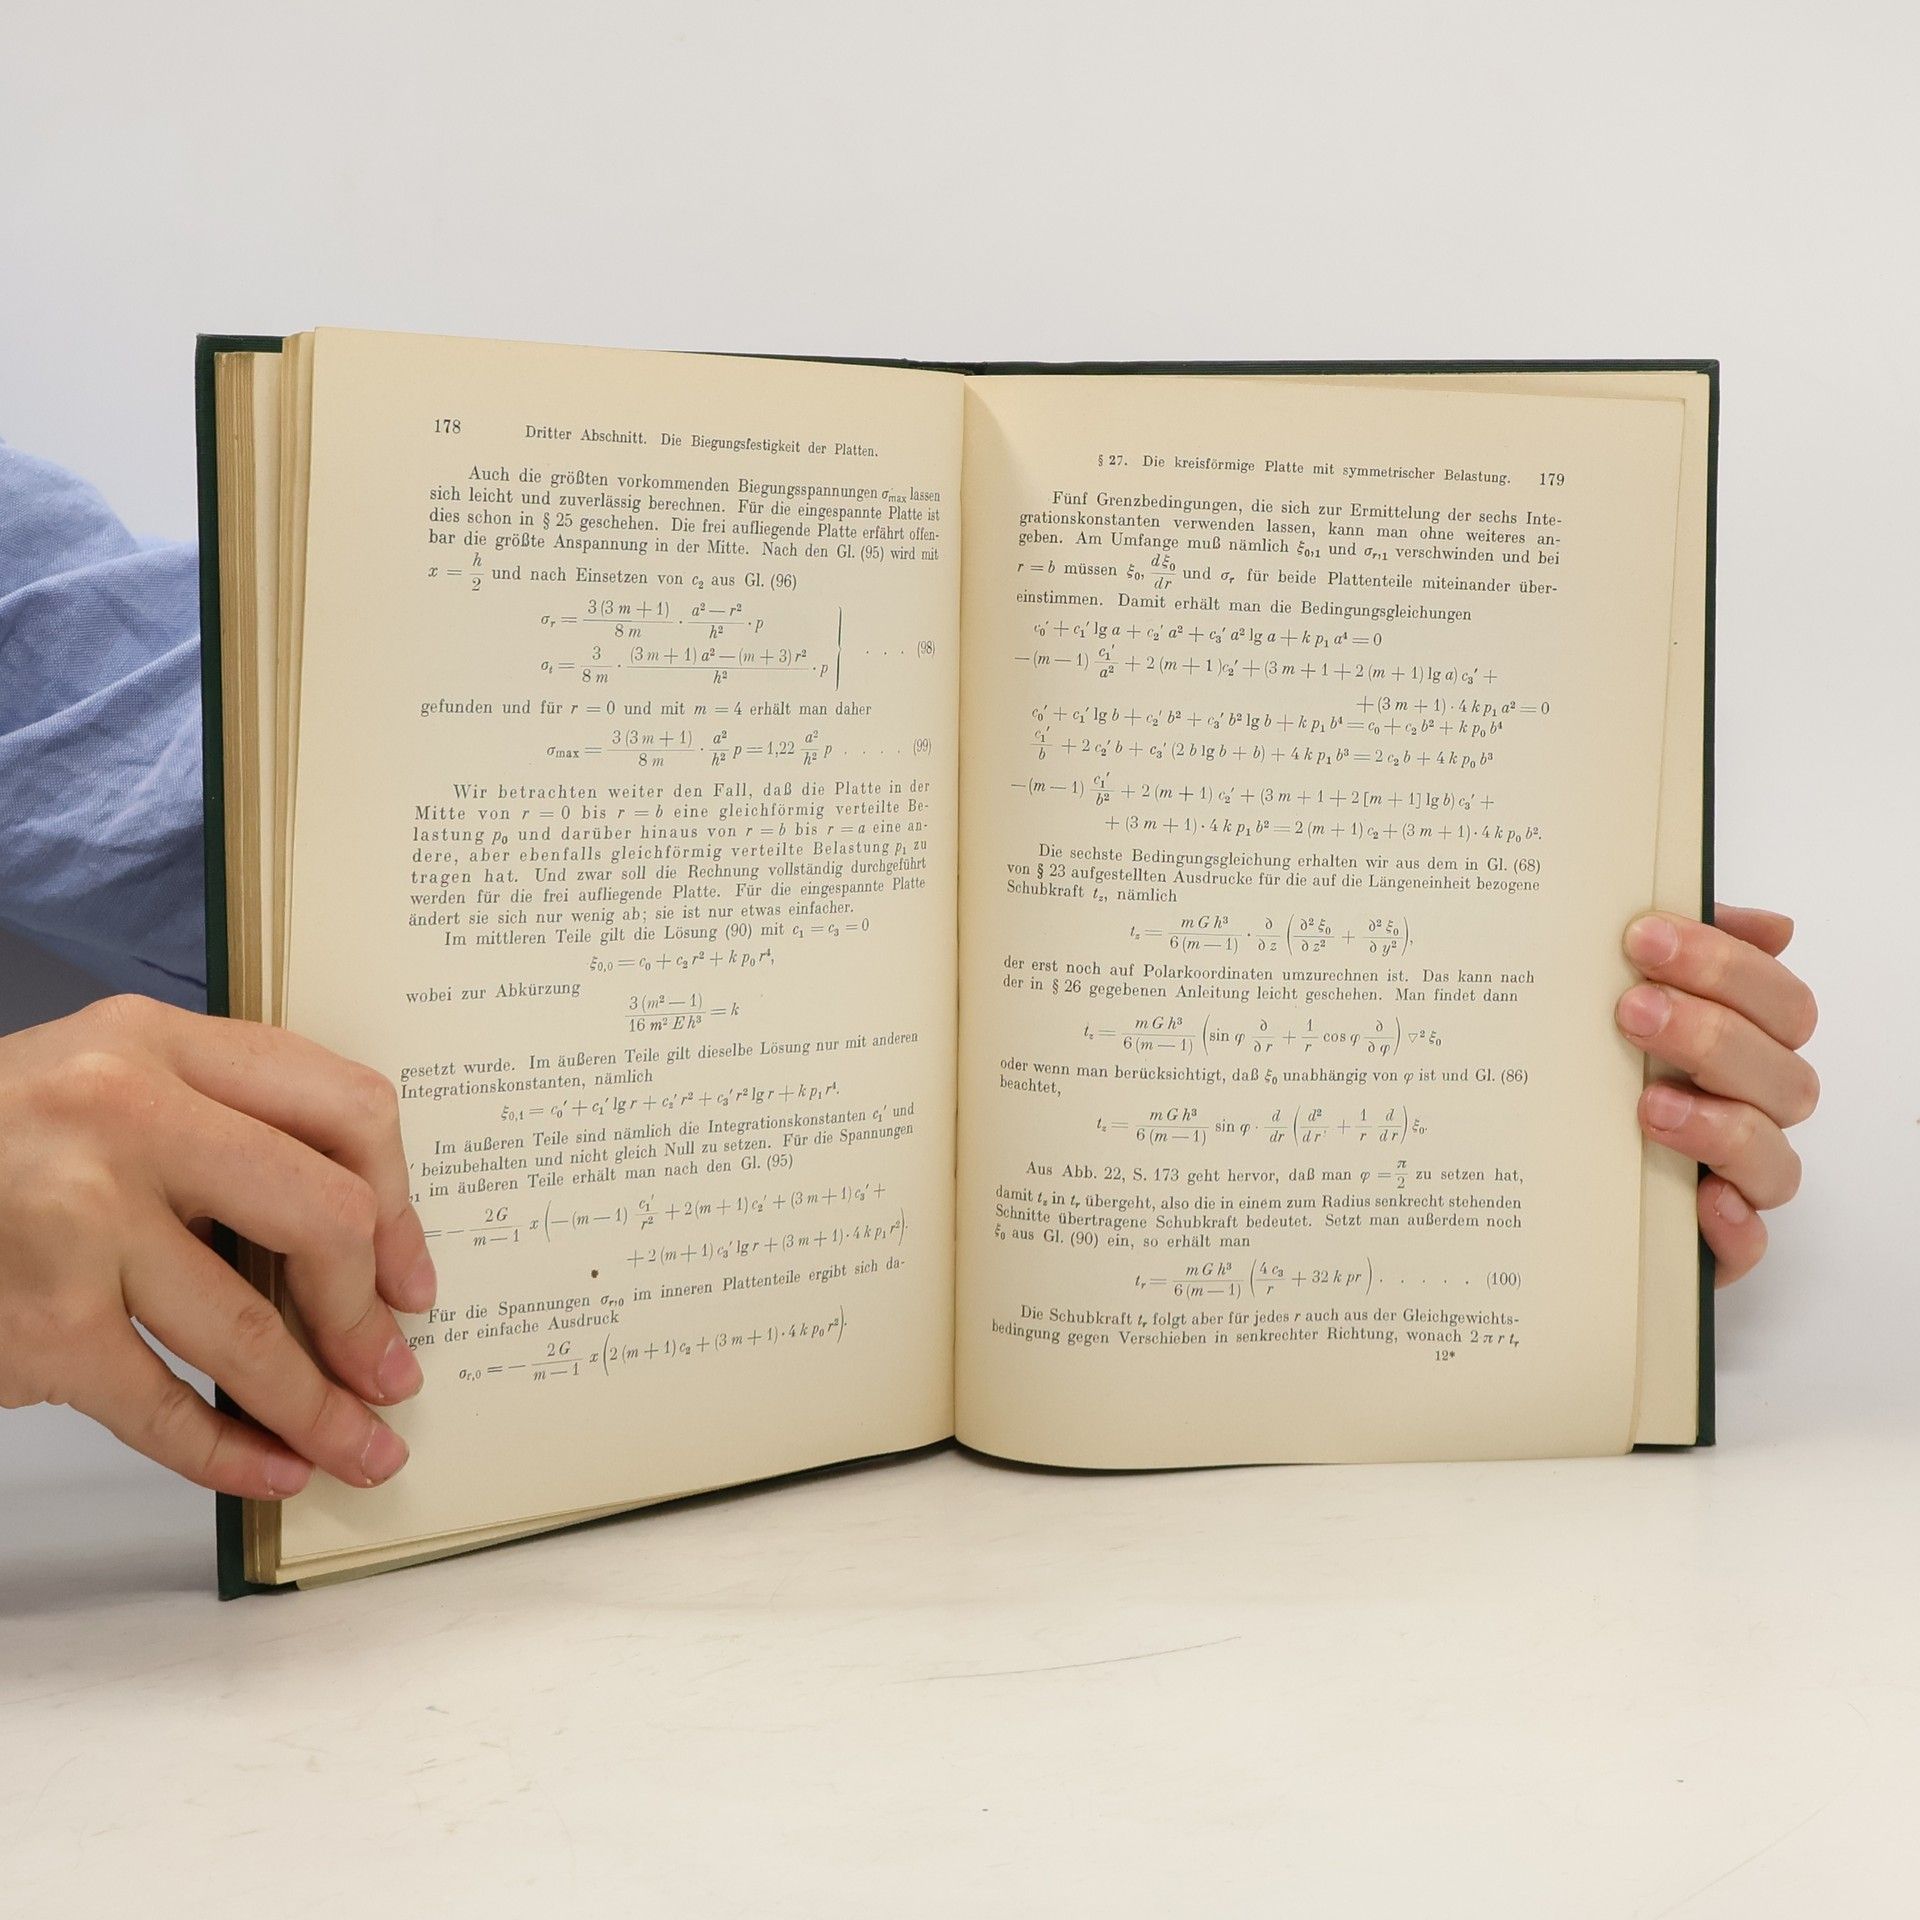 178 Dritter Abschnitt. Die Biegungsfestigkeit der Platten.
Auch die größten vorkommenden Biegungsspannungen σ_max lassen
sich leicht und zuverlässig berechnen. Für die eingespannte Platte ist
dies schon in § 25 geschehen. Die frei aufliegende Platte erfährt offen-
bar die größte Anspannung in der Mitte. Nach den Gl. (95) wird mit
x = h/2 und nach Einsetzen von c₂ aus Gl. (96)
σ_r = 3(3m+1)/8m · (a²—r²)/h² · p
σ_t = 3/8m · ((3m+1)a²—(m+3)r²)/h² · p . . . (98)
gefunden und für r = 0 und mit m = 4 erhält man daher
σ_max = 3(3m+1)/8m · a²/h² p = 1,22 a²/h² p . . . . (99)
Wir betrachten weiter den Fall, daß die Platte in der
Mitte von r = 0 bis r = b eine gleichförmig verteilte Be-
lastung p₀ und darüber hinaus von r = b bis r = a eine an-
dere, aber ebenfalls gleichförmig verteilte Belastung p₁ zu
tragen hat. Und zwar soll die Rechnung vollständig durchgeführt
werden für die frei aufliegende Platte. Für die eingespannte Platte
ändert sie sich nur wenig ab; sie ist nur etwas einfacher.
Im mittleren Teile gilt die Lösung (90) mit c₁ = c₃ = 0
ξ₀,₀ = c₀ + c₂ r² + k p₀ r⁴,
wobei zur Abkürzung
3(m²—1)/16 m² E h³ = k
gesetzt wurde. Im äußeren Teile gilt dieselbe Lösung nur mit anderen
Integrationskonstanten, nämlich
ξ₀,₁ = c₀′ + c₁′ lg r + c₂′ r² + c₃′ r² lg r + k p₁ r⁴.
Im äußeren Teile sind nämlich die Integrationskonstanten c₁′ und
′ beizubehalten und nicht gleich Null zu setzen. Für die Spannungen
,₁ im äußeren Teile erhält man nach den Gl. (95)
= — 2G/(m—1) x (—(m—1) c₁′/r² + 2(m+1) c₂′ + (3m+1) c₃′ +
+ 2(m+1) c₃′ lg r + (3m+1) · 4 k p₁ r²).
Für die Spannungen σ_r,₀ im inneren Plattenteile ergibt sich da-
gen der einfache Ausdruck
σ_r,₀ = — 2G/(m—1) x (2(m+1) c₂ + (3m+1) · 4 k p₀ r²).
§ 27. Die kreisförmige Platte mit symmetrischer Belastung. 179
Fünf Grenzbedingungen, die sich zur Ermittelung der sechs Inte-
grationskonstanten verwenden lassen, kann man ohne weiteres an-
geben. Am Umfange muß nämlich ξ₀,₁ und σ_r,₁ verschwinden und bei
r = b müssen ξ₀, dξ₀/dr und σ_r für beide Plattenteile miteinander über-
einstimmen. Damit erhält man die Bedingungsgleichungen
c₀′ + c₁′ lg a + c₂′ a² + c₃′ a² lg a + k p₁ a⁴ = 0
—(m—1) c₁′/a² + 2(m+1)c₂′ + (3m+1+2(m+1) lg a) c₃′ +
+ (3m+1) · 4 k p₁ a² = 0
c₀′ + c₁′ lg b + c₂′ b² + c₃′ b² lg b + k p₁ b⁴ = c₀ + c₂ b² + k p₀ b⁴
c₁′/b + 2 c₂′ b + c₃′ (2 b lg b + b) + 4 k p₁ b³ = 2 c₂ b + 4 k p₀ b³
—(m—1) c₁′/b² + 2(m+1) c₂′ + (3m+1+2[m+1] lg b) c₃′ +
+ (3m+1) · 4 k p₁ b² = 2(m+1) c₂ + (3m+1) · 4 k p₀ b².
Die sechste Bedingungsgleichung erhalten wir aus dem in Gl. (68)
von § 23 aufgestellten Ausdrucke für die auf die Längeneinheit bezogene
Schubkraft t_z, nämlich
t_z = m G h³/6(m—1) · ∂/∂z (∂²ξ₀/∂z² + ∂²ξ₀/∂y²),
der erst noch auf Polarkoordinaten umzurechnen ist. Das kann nach
der in § 26 gegebenen Anleitung leicht geschehen. Man findet dann
t_z = m G h³/6(m—1) (sin φ ∂/∂r + 1/r cos φ ∂/∂φ) ▽² ξ₀
oder wenn man berücksichtigt, daß ξ₀ unabhängig von φ ist und Gl. (86)
beachtet,
t_z = m G h³/6(m—1) sin φ · d/dr (d²/dr² + 1/r d/dr) ξ₀.
Aus Abb. 22, S. 173 geht hervor, daß man φ = π/2 zu setzen hat,
damit t_z in t_r übergeht, also die in einem zum Radius senkrecht stehenden
Schnitte übertragene Schubkraft bedeutet. Setzt man außerdem noch
ξ₀ aus Gl. (90) ein, so erhält man
t_r = m G h³/6(m—1) (4 c₃/r + 32 k p r) . . . . . (100)
Die Schubkraft t_r folgt aber für jedes r auch aus der Gleichgewichts-
bedingung gegen Verschieben in senkrechter Richtung, wonach 2 π r t_r
12*